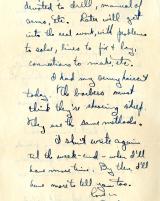 devoted to drill, manual of
arms, etc. Later will get
into the real work, with problems
to solve, lines to fix & lay,
connections to make, etc.
I had my army haircut
today. The barbers must
think they're shearing sheep.
They use the same methods.
I shan't write again
til the week-end - when I'll
have more time. By then I'll
have more to tell you too.